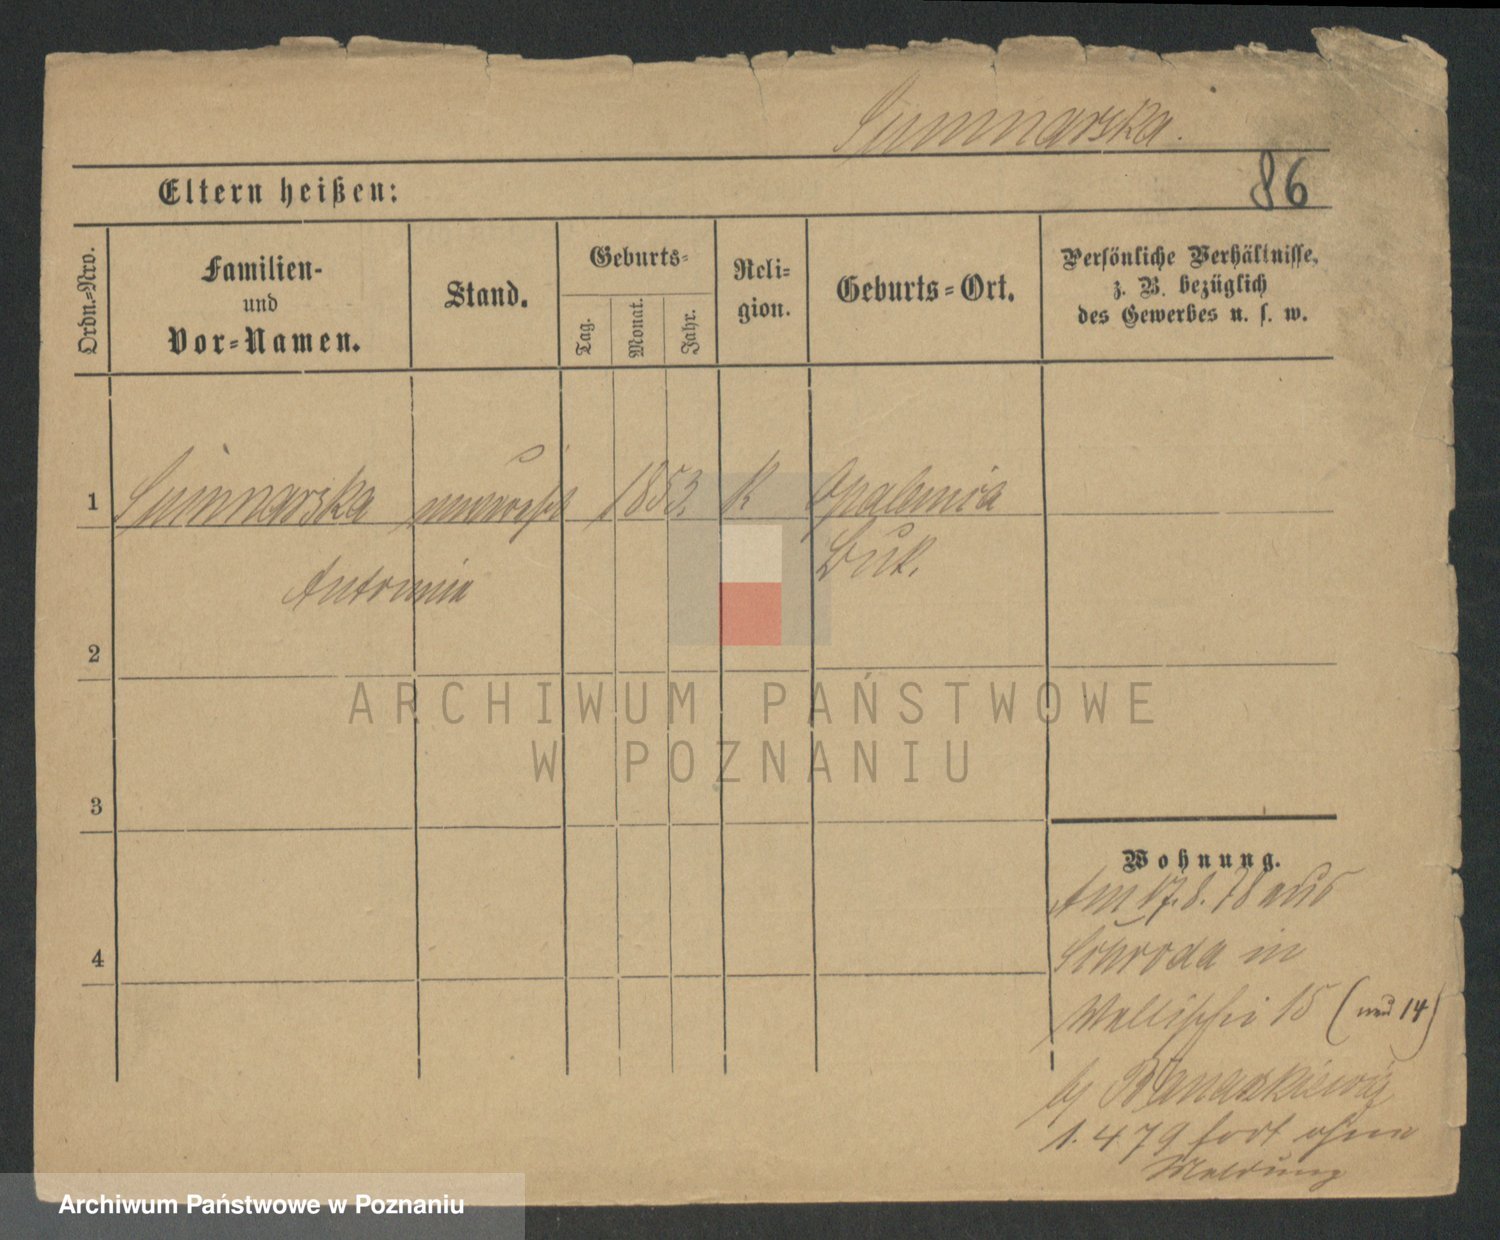 Suminarska.
86
Eltern heißen:
Ordn.=Nro.
Familien-
und
Vor=Namen.
Stand.
Geburts=
Tag.
Monat.
Jahr.
Reli=
gion.
Geburts=Ort.
Persönliche Verhältnisse,
z. B. bezüglich
des Gewerbes u. s. w.
1 Suminarska unverehl 1853. K Opalenica
Antonie Buk.
2
3
4
Wohnung.
Am 17.8.78 aus
Schroda in
Wallischei 15 (neu 14)
1.4.79 fort ohne
Meldung
ARCHIWUM PAŃSTWOWE
W POZNANIU
Archiwum Państwowe w Poznaniu